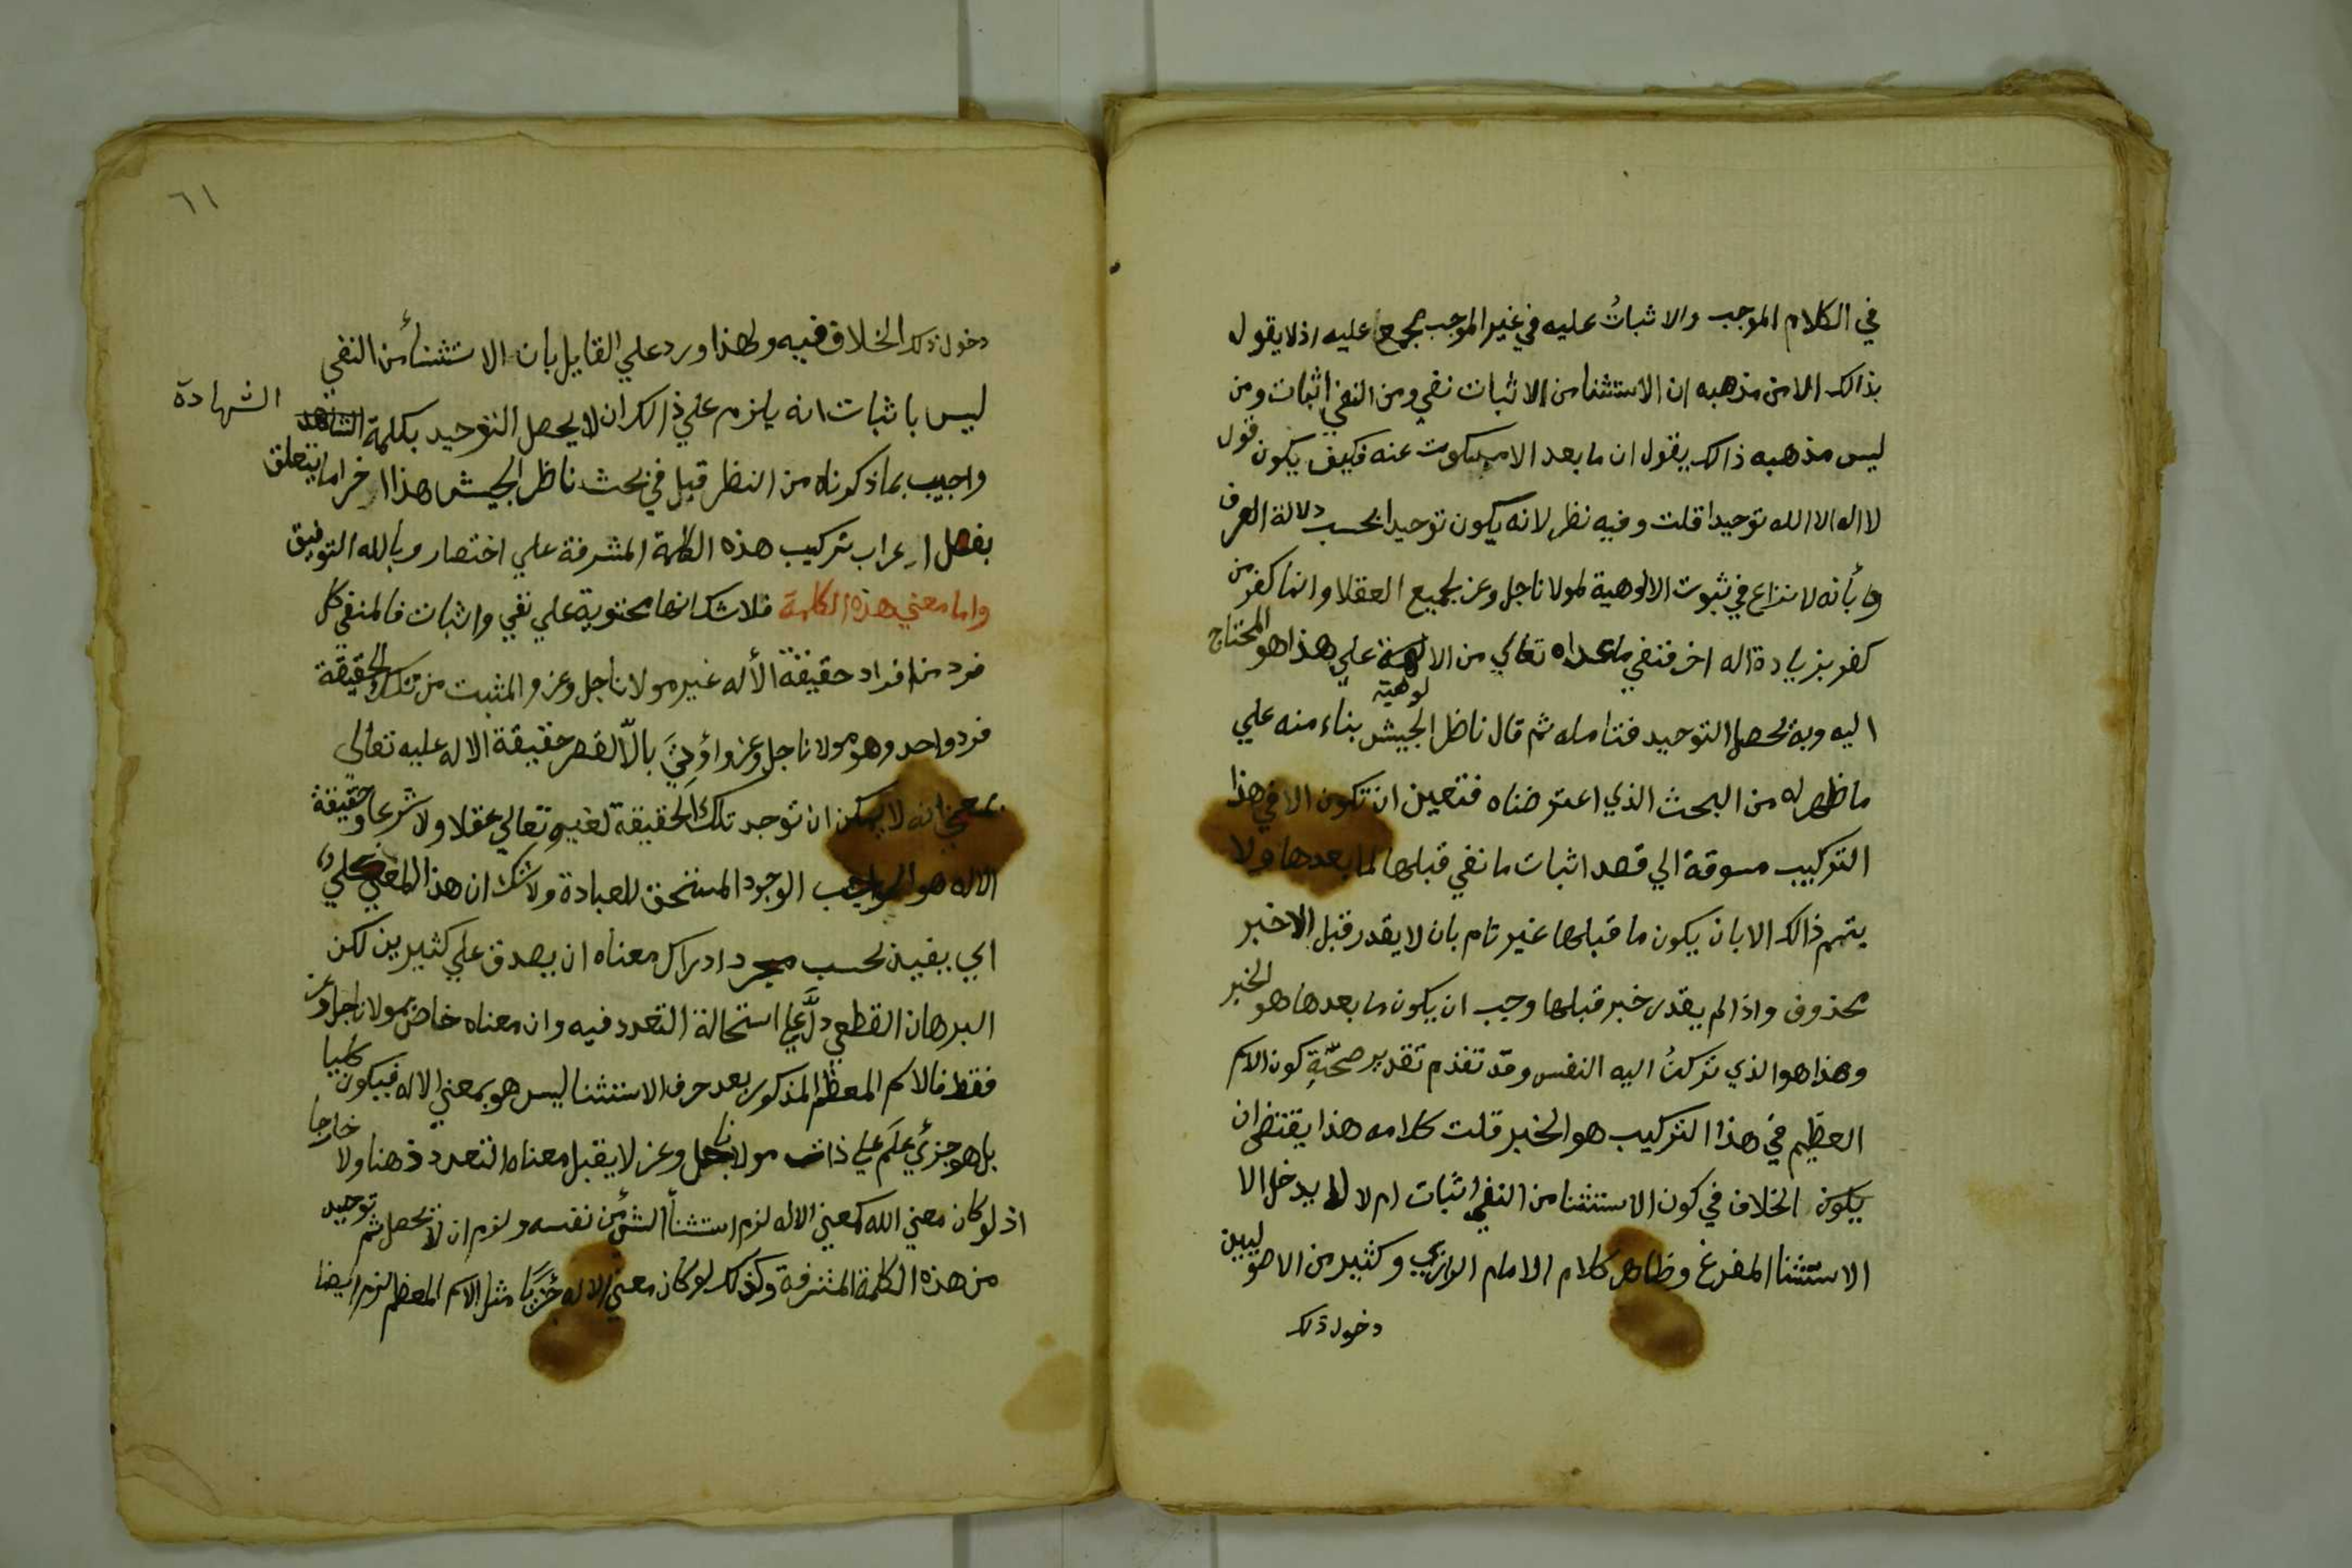 في الكلام الموجب والاثباتُ عليه في غير الموجب مجمع عليه اذ لا يقول
بذالك الا من مذهبه ان الاستثنا من الاثبات نفي ومن النفي اثبات ومن
ليس مذهبه ذالك يقول ان ما بعد الا مسكوت عنه فكيف يكون قول
لا اله الا الله توحيدا قلت وفيه نظر لانه يكون توحيدا بحسب دلالة العرف
وبأنه لا نزاع في ثبوت الالوهية لمولانا جل وعز لجميع العقلا وانما كفر من
كفر بزيادة اله اخر فنفي ما عداه تعالي من الالوهية علي هذا هو المحتاج
اليه وبه يحصل التوحيد فتامله ثم قال ناظر الجيش بناء منه علي
ما ظهر له من البحث الذي اعترضناه فتعين ان تكون الا في هذا
التركيب مسوقة الي قصد اثبات ما نفي قبلها لما بعدها ولا
يتم ذالك الا بان يكون ما قبلها غير تام بان لا يقدر قبل الا خبر
محذوف واذا لم يقدر خبر قبلها وجب ان يكون ما بعدها هو الخبر
وهذا هو الذي تركنُ اليه النفس وقد تقدم تقدير صحّةِ كون الاسم
العظيم في هذا التركيب هو الخبر قلت كلامه هذا يقتضي ان
يكون الخلاف في كون الاستثنا من النفي اثبات ام لا لا يدخل الا
الاستثنا المفرغ وظاهر كلام الامام الرازي وكثير من الاصوليين
دخول ذلك
٦١
دخول ذلك الخلاف فيه ولهذا ورد علي القايل بان الاستثنأ من النفي
ليس باثبات انه يلزم علي ذالك ان لا يحصل التوحيد بكلمة الشهادة
واجيب بما ذكرناه من النظر قبل في بحث ناظر الجيش هذا اخر ما يتعلق
بفصل اعراب تركيب هذه الكلمة المشرفة علي اختصار وبالله التوفيق
واما معني هذه الكلمة فلا شك انها محتوية علي نفي واثبات فالمنفي كل
فرد من افراد حقيقة الأله غير مولانا جل وعز والمثبت من تلك الحقيقة
فرد واحد وهو مولانا جل وعز واؤتيَ بالّا لقصر حقيقة الاله عليه تعالي
بمعني انه لا يمكن ان توجد تلك الحقيقة لغيره تعالي عقلا ولا شرعا وحقيقة
الاله هو الواجب الوجود المستحق للعبادة ولا شك ان هذا المعني كلي
اي يقبل بحسب مجرد ادراك معناه ان يصدق علي كثيرين لكن
البرهان القطعي دلَّ علي استحالة التعدد فيه وان معناه خاص بمولانا جل وعز
فقط فالاسم المعظم المذكور بعد حرف الاستثنا ليس هو بمعني الاله فيكون كليا
بل هو جزئي علَم علي ذات مولانا جل وعز لا يقبل معناه التعدد ذهنا ولا خارجا
اذ لو كان معني الله كمعني الاله لزم استثنأ الشئ من نفسه ولزم ان لا يحصل ثم توحيد
من هذه الكلمة المشرفة وكذلك لو كان معني الاله جزيّا مثل الاسم المعظم لزم ايضا